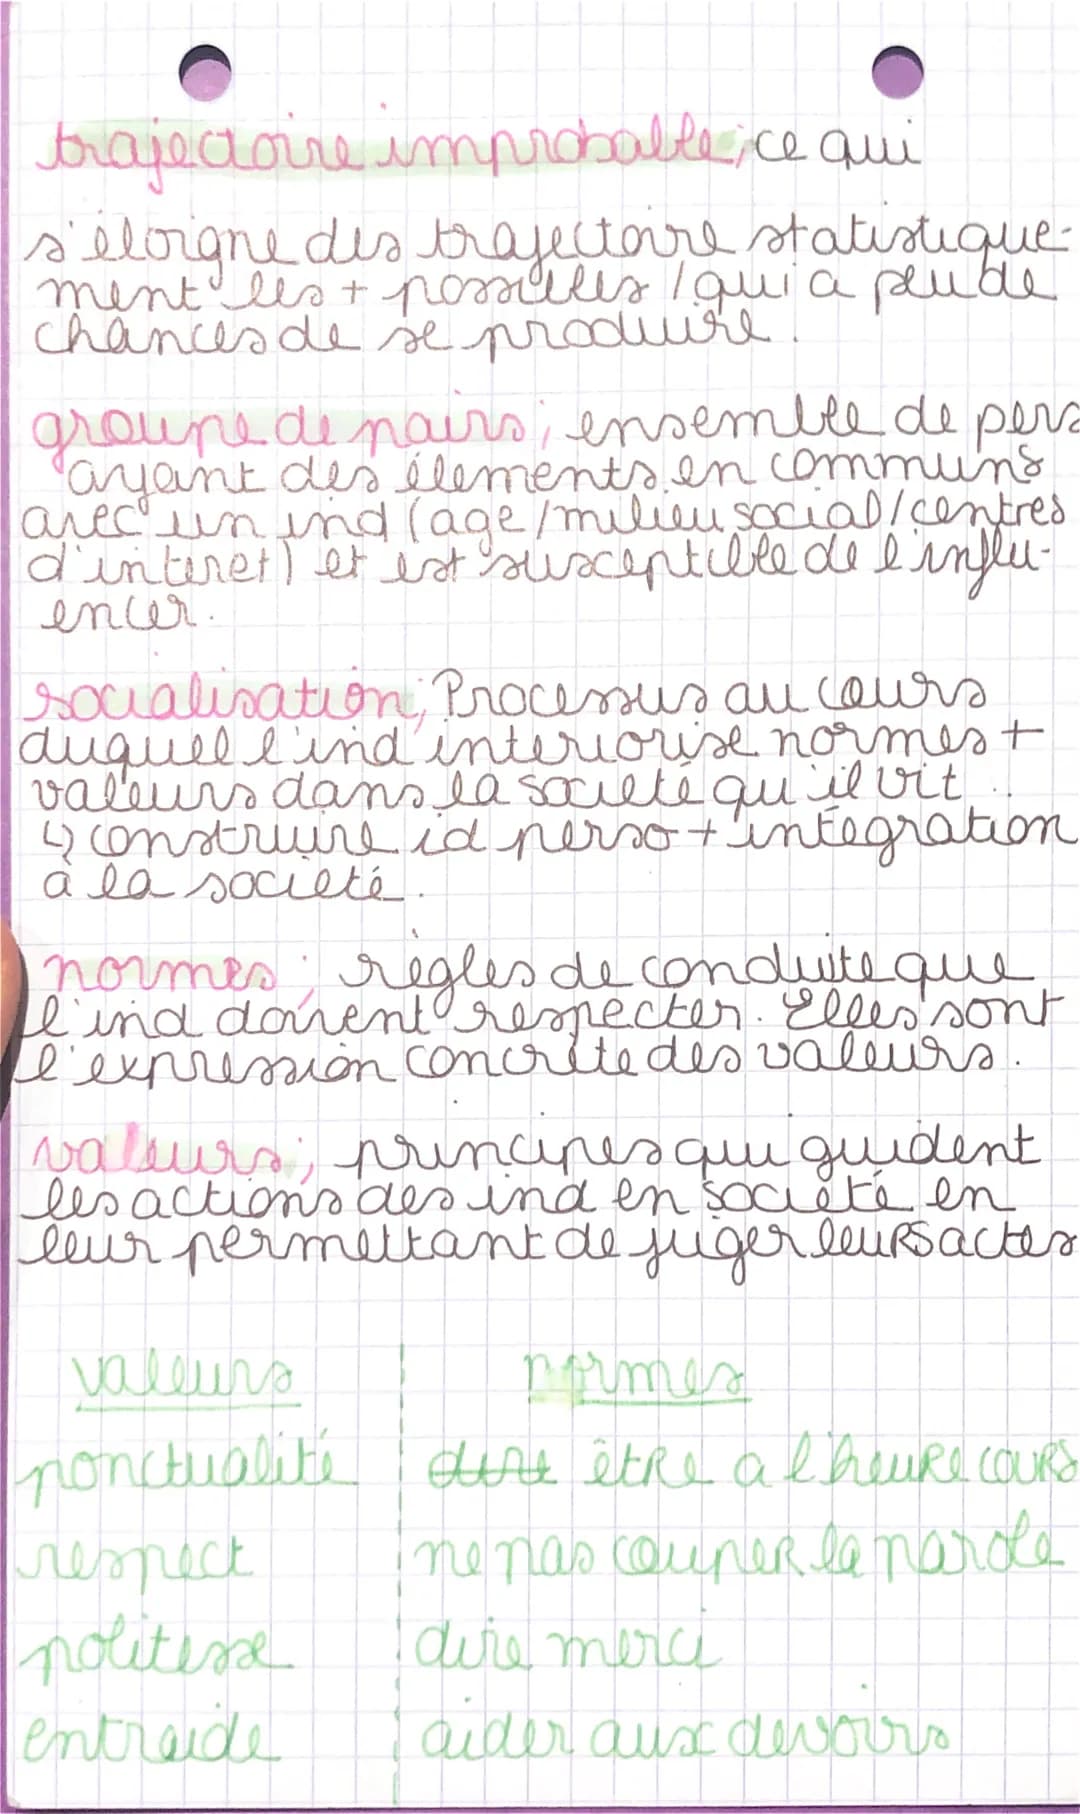 trajectoire improbable; ce qui
s'éloigne des trajectoire statistique-
ment les + possibles / qui a peu de
chances de se produire.
groupe de pairs; ensemble de pers
ayant des élements en communs
avec un ind (age/milieu social/centres
d'interet) et est susceptible de l'influ-
encer.
socialisation; Processus au cours
duquel l'ind interiorise normes +
valeurs dans la société qu'il vit.
↳ construire id perso + intégration
à la société.
normes; règles de conduite que
l'ind doivent respecter. Elles sont
l'expression concrète des valeurs.
valeurs; principes qui guident
les actions des ind en société en
leur permettant de juger leurs actes
valeurs normes
ponctualité dire être a l'heure cours
respect ne pas couper la parole
politesse dire merci
entraide aider aux devoirs